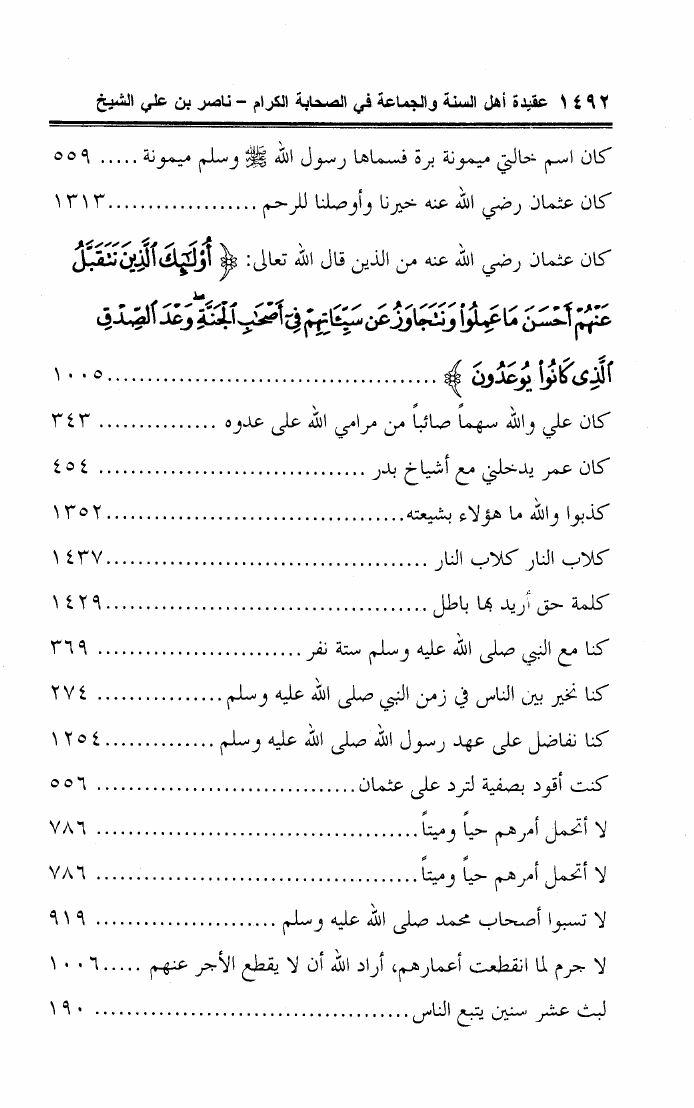 ١٤٩٢ عقيدة أهل السنة والجماعة في الصحابة الكرام - ناصر بن علي الشيخ
كان اسم خالتي ميمونة برة فسماها رسول الله ﷺ وسلم ميمونة ..... ٥٥٩
كان عثمان رضي الله عنه خيرنا وأوصلنا للرحم................... ١٣١٣
كان عثمان رضي الله عنه من الذين قال الله تعالى: ﴿ أُوْلَٰٓئِكَ ٱلَّذِينَ نَتَقَبَّلُ
عَنْهُمْ أَحْسَنَ مَا عَمِلُواْ وَنَتَجَاوَزُ عَن سَيِّـَٔاتِهِمْ فِىٓ أَصْحَٰبِ ٱلْجَنَّةِ ۖ وَعْدَ ٱلصِّدْقِ
ٱلَّذِى كَانُواْ يُوعَدُونَ ﴾ ......................................... ١٠٠٥
كان علي والله سهماً صائباً من مرامي الله على عدوه ............... ٣٤٣
كان عمر يدخلني مع أشياخ بدر .................................. ٤٥٤
كذبوا والله ما هؤلاء بشيعته..................................... ١٣٥٢
كلاب النار كلاب النار ........................................ ١٤٣٧
كلمة حق أريد بها باطل ........................................ ١٤٢٩
كنا مع النبي صلى الله عليه وسلم ستة نفر.......................... ٣٦٩
كنا نخير بين الناس في زمن النبي صلى الله عليه وسلم................ ٢٧٤
كنا نفاضل على عهد رسول الله صلى الله عليه وسلم .............. ١٢٥٤
كنت أقود بصفية لترد على عثمان................................. ٥٥٦
لا أتحمل أمرهم حياً وميتاً......................................... ٧٨٦
لا أتحمل أمرهم حياً وميتاً......................................... ٧٨٦
لا تسبوا أصحاب محمد صلى الله عليه وسلم ....................... ٩١٩
لا جرم لما انقطعت أعمارهم، أراد الله أن لا يقطع الأجر عنهم ..... ١٠٠٦
لبث عشر سنين يتبع الناس........................................ ١٩٠